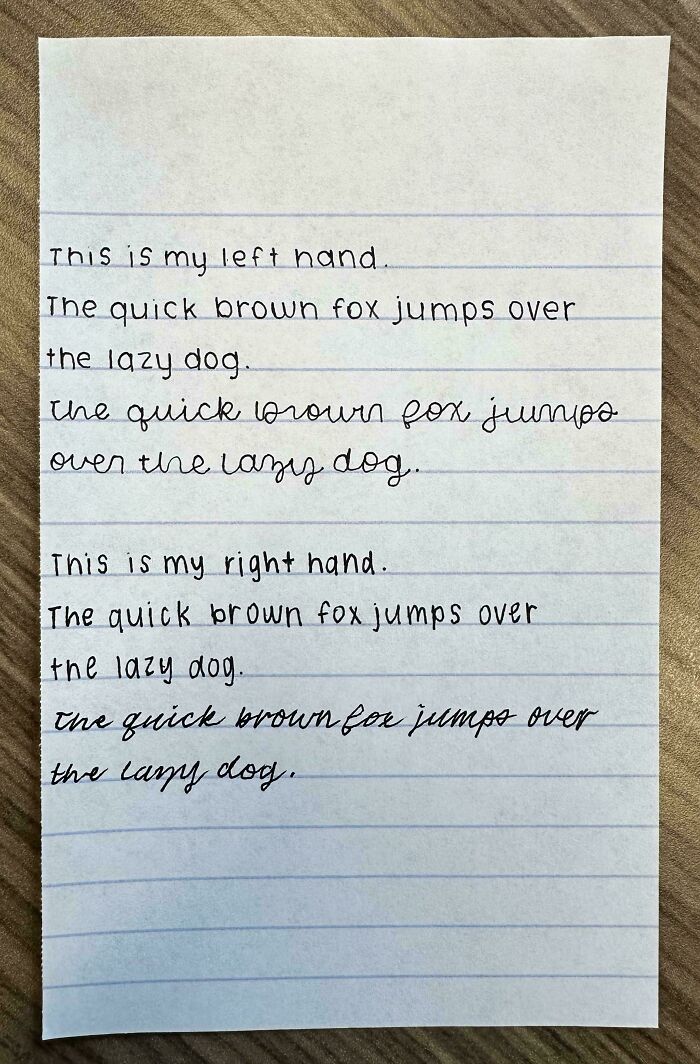 This is my left hand.
The quick brown fox jumps over
the lazy dog.
The quick brown fox jumps
over the lazy dog.
This is my right hand.
The quick brown fox jumps over
the lazy dog.
The quick brown fox jumps over
the lazy dog.